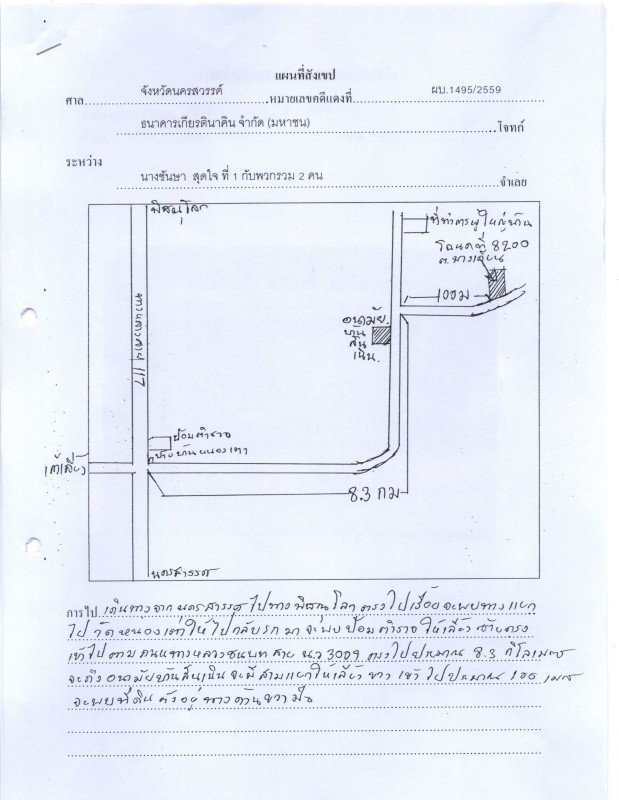 แผนที่สังเขป
ศาล จังหวัดนครสวรรค์ หมายเลขคดีแดงที่ ผบ.1495/2559
ธนาคารเกียรตินาคิน จำกัด (มหาชน) โจทก์
ระหว่าง
นางชันษา สุดใจ ที่ 1 กับพวกรวม 2 คน จำเลย
พิษณุโลก
ที่ทำการผู้ใหญ่บ้าน
โฉนดที่ 8200
ต.บางเคียน
100 ม
อนามัย
บ้าน
สิ้น
เนิน
ทางหลวงสาย 117
ป้อมตำรวจ
8.3 กม
นครสวรรค์
การไป เดินทางจากนครสวรรค์ไปทางพิษณุโลก ตรงไปเรื่อย จะพบทางแยก
ไปวัดหนองเต่าให้ไปกลับรถ มาจะพบป้อมตำรวจ ให้เลี้ยวซ้ายตรง
เข้าไปตามถนนทางหลวงชนบท สาย นว 3009 ตรงไปประมาณ 8.3 กิโลเมตร
จะถึงอนามัยบ้านสิ้นเนิน จะมีสามแยกให้เลี้ยวขวา เข้าไปประมาณ 100 เมตร
จะพบที่ดินตั้งอยู่ทางด้านขวามือ